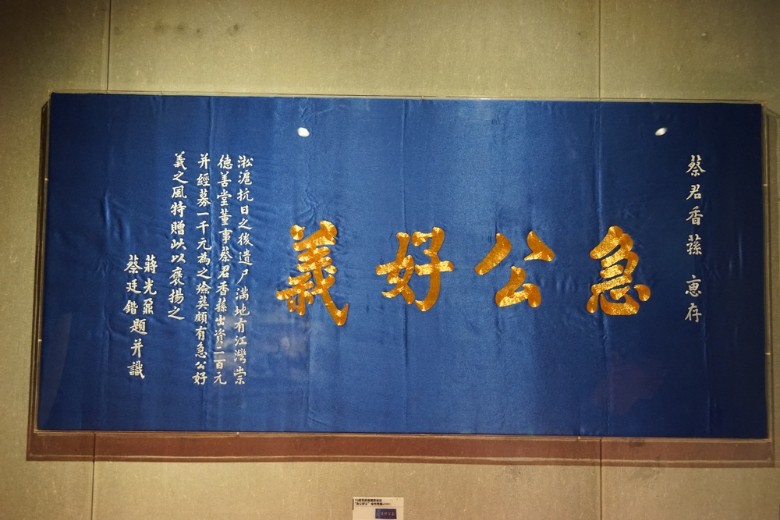 蔡君香蓀 惠存
急公好義
淞滬抗日之後遺尸滿地有江灣崇
德善堂董事蔡君香蓀出資二百元
并經募一千元為之殮葬頗有急公好
義之風特贈此以褒揚之
蔣光鼐
蔡廷鍇 題并識